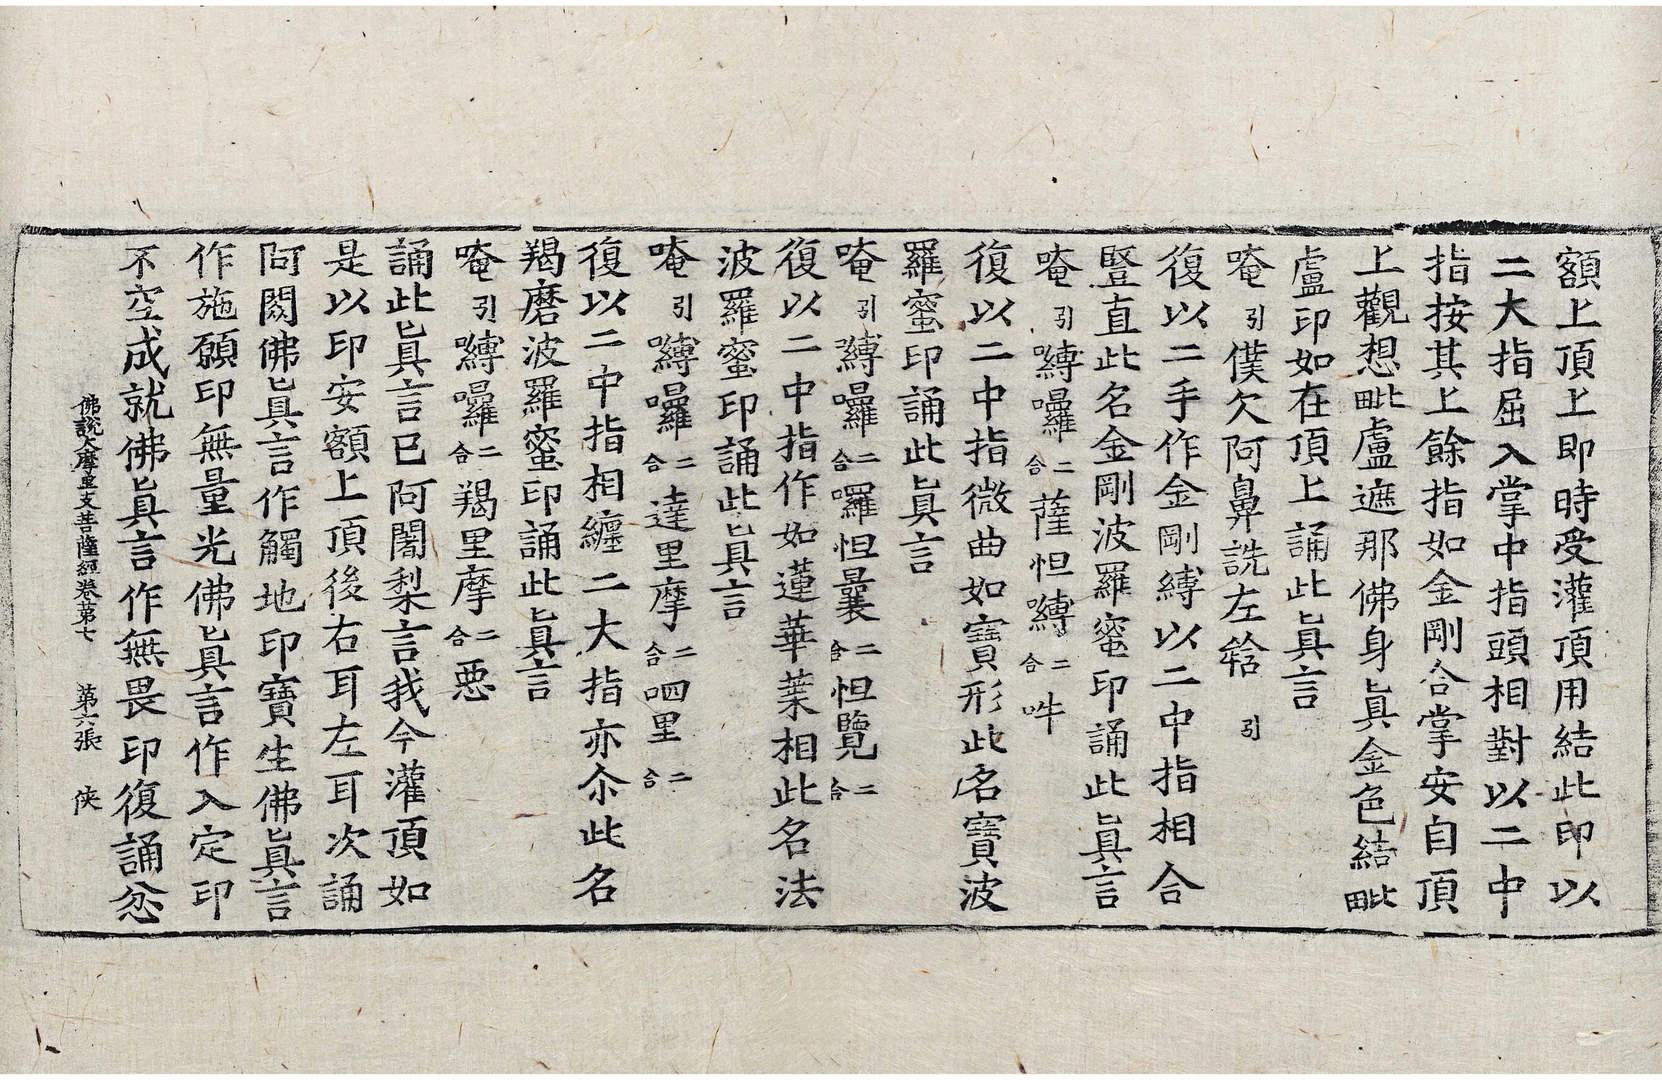 額上頂上即時受灌頂用結此印以
二大指屈入掌中指頭相對以二中
指按其上餘指如金剛合掌安自頂
上觀想毗盧遮那佛身眞金色結毗
盧印如在頂上誦此眞言
唵引僕欠阿鼻詵左㘕引
復以二手作金剛縛以二中指相合
豎直此名金剛波羅蜜印誦此眞言
唵引嚩囉二合薩怛嚩二合吽
復以二中指微曲如寶形此名寶波
羅蜜印誦此眞言
唵引嚩囉二合囉怛曩二合怛覽二合
復以二中指作如蓮華葉相此名法
波羅蜜印誦此眞言
唵引嚩囉二合達里摩二合呬里二合
復以二中指相纏二大指亦尒此名
羯磨波羅蜜印誦此眞言
唵引嚩囉二合羯里摩二合惡
誦此眞言已阿闍梨言我今灌頂如
是以印安額上頂後右耳左耳次誦
阿閦佛眞言作觸地印寶生佛眞言
作施願印無量光佛眞言作入定印
不空成就佛眞言作無畏印復誦忿
佛說大摩里支菩薩經卷第七 第六張 俠